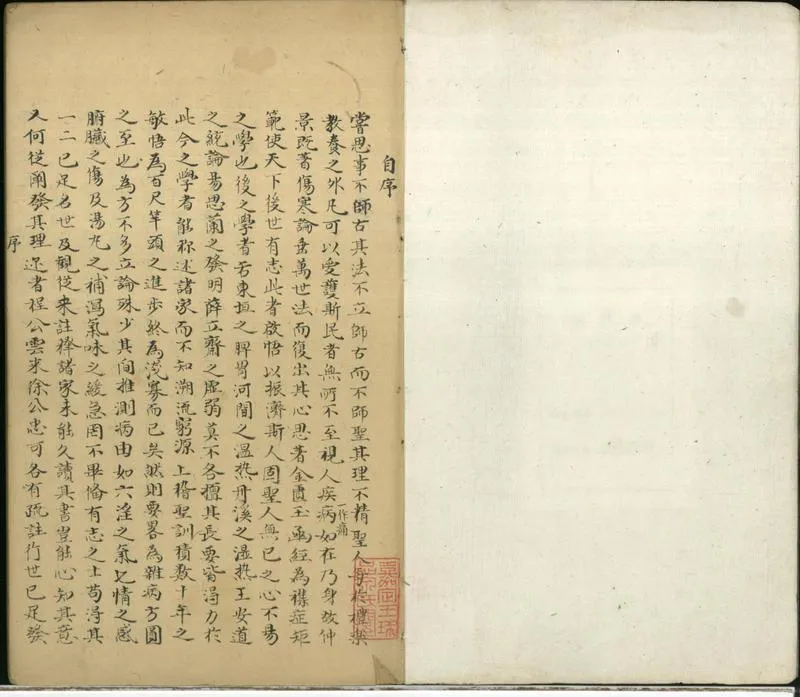 自序
嘗思事不師古其法不立師古而不師聖其理不精聖人每於禮樂
教養之外凡可以愛護斯民者無所不至視人疾病如在乃身故仲
一作痛
景既著傷寒論垂萬世法而復出其心思著金匱玉函經為襍症矩
範使天下後世有志此者啟悟以振濟斯人固聖人無已之心不易
之學也後之學者若東垣之脾胃河間之溫熱丹溪之濕熱王安道
之統論易思蘭之發明薛立齋之虛弱莫不各擅其長要皆淂力於
此今之學者能称述諸家而不知溯流窮源上稽聖訓積數十年之
敏悟為百尺竿頭之進步終為淺寡而已矣然則要畧為雜病方圓
之至也為方不多立論殊少其间推測病由如六淫之氣七情之感
腑臟之傷及湯丸之補瀉氣味之緩急罔不畢備有志之士苟淂其
一二已足名世及觀從来註釋諸家未能久讀其書豈能心知其意
又何從闡發其理近者程公雲来徐公忠可各有疏註行世已足發
序